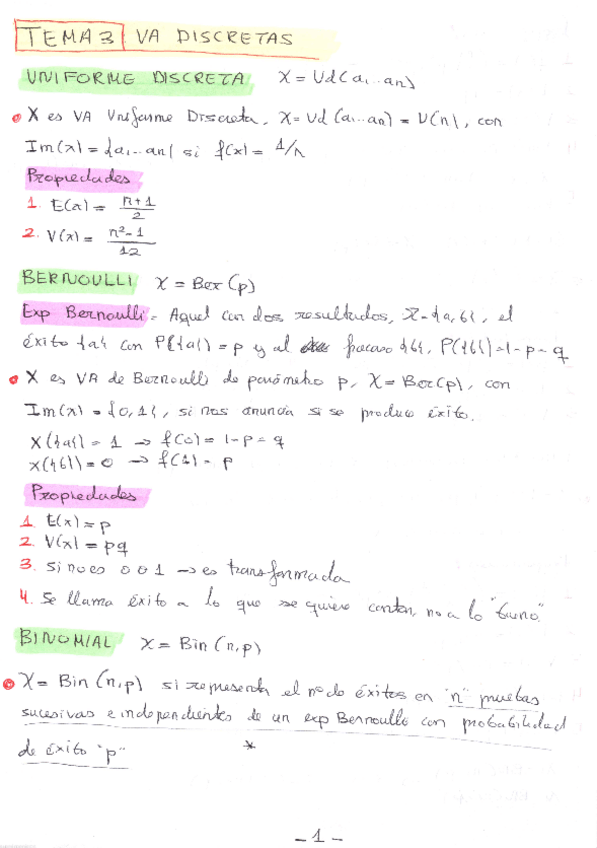 TEMA 3 VA DISCRETAS
UNIFORME DISCRETA X = Ud(a1...an)
X es VA Uniforme Discreta, X = Ud(a1...an) = U(n), con
Im(x) = {a1...an} si f(x) = 1/n
Propiedades
1. E(x) = n+1/2
2. V(x) = n²-1/12
BERNOULLI X = Ber(p)
Exp Bernoulli = Aquel con dos resultados, X={a,b}, el
éxito {a} con P({a}) = p y al fracaso {b}, P({b}) = 1-p = q
X es VA de Bernoulli de parámetro p, X = Ber(p), con
Im(x) = {0,1}, si nos anuncia si se produce éxito.
X({a}) = 1 → f(0) = 1-p = q
X({b}) = 0 → f(1) = p
Propiedades
1. E(x) = p
2. V(x) = pq
3. Si no es 0 o 1 → es transformada
4. Se llama éxito a lo que se quiere contar, no a lo "bueno".
BINOMIAL X = Bin(n,p)
X = Bin(n,p) si representa el nº de éxitos en "n" pruebas
sucesivas e independientes de un exp Bernoullo con probabilidad
de éxito "p" *
- 1 -